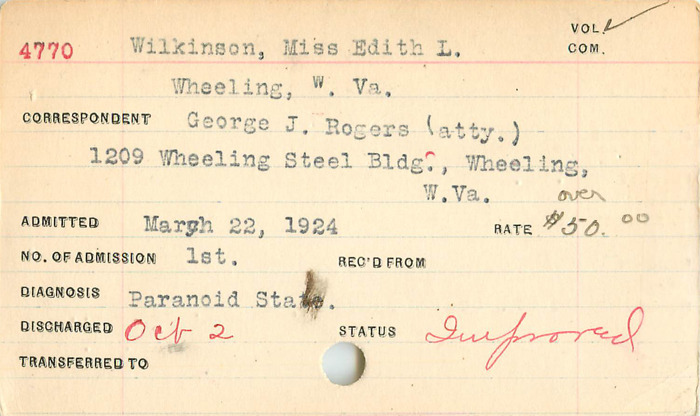 VOL ✓
4770 Wilkinson, Miss Edith L. COM.
Wheeling, W. Va.
CORRESPONDENT George J. Rogers (atty.)
1209 Wheeling Steel Bldg?, Wheeling,
W.Va. over
ADMITTED March 22, 1924 RATE $50.00
NO. OF ADMISSION 1st. REC'D FROM
DIAGNOSIS Paranoid State.
DISCHARGED Oct 2 STATUS Improved
TRANSFERRED TO